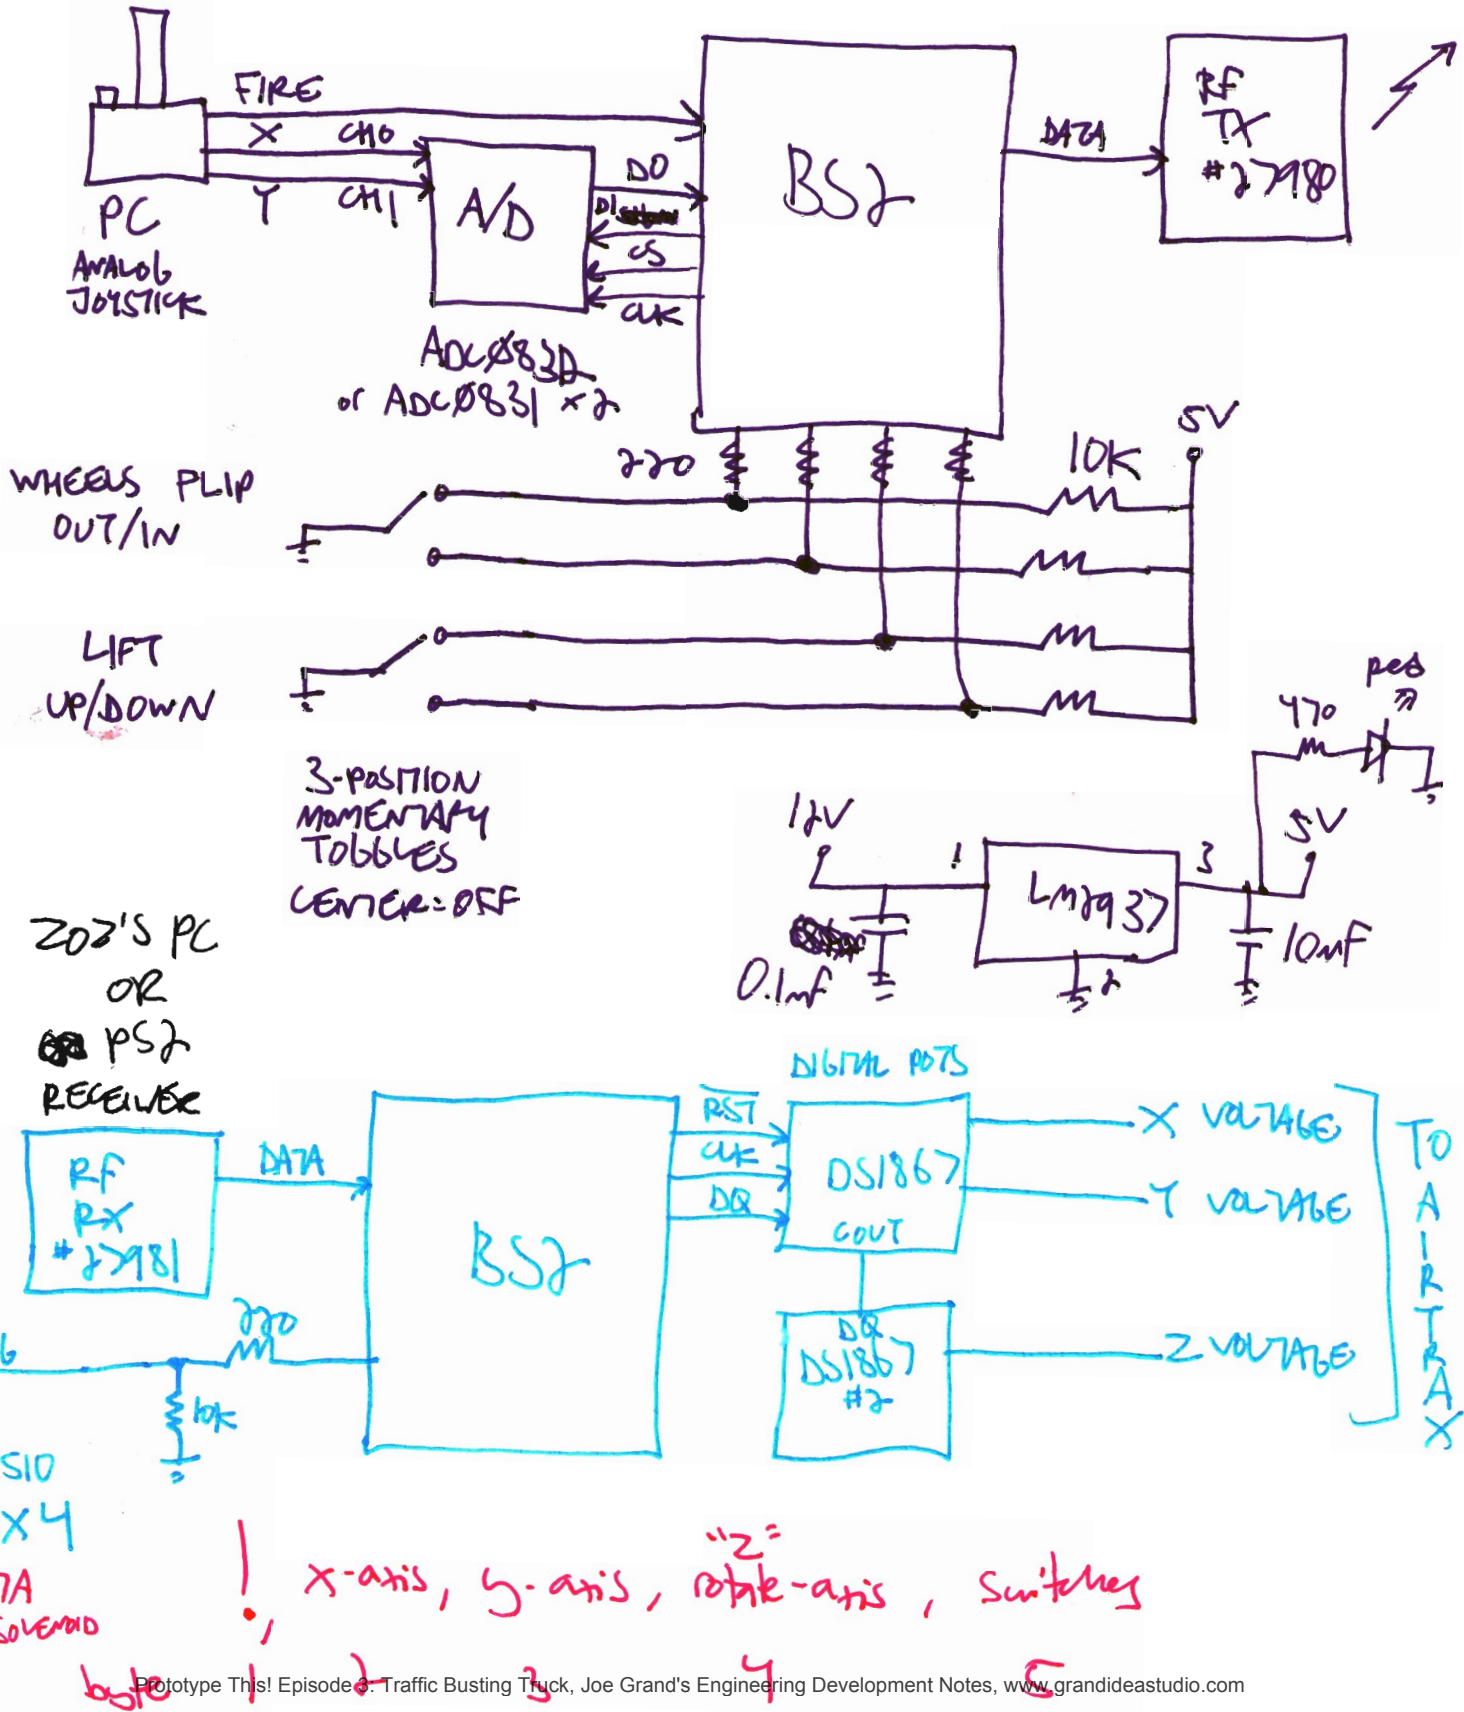 FIRE
X CH0
Y CH1
PC
ANALOG
JOYSTICK
A/D
DO
DI
CS
CLK
ADCØ832
or ADCØ831 x2
BS2
DATA
RF
TX
#27980
220
10K
5V
WHEELS FLIP
OUT/IN
LIFT
UP/DOWN
3-POSITION
MOMENTARY
TOGGLES
CENTER=OFF
470
RED
12V
1
LM2937
3
5V
2
0.1mF
10mF
ZOZ'S PC
OR
PS2
RECEIVER
RF
RX
#27981
DATA
BS2
220
10K
RST
CLK
DQ
DIGITAL POTS
DS1867
COUT
DQ
DS1867
#2
X VOLTAGE
Y VOLTAGE
Z VOLTAGE
TO AIRTRAX
SIO
x4
TA
SOLENOID
"Z"
!, x-axis, y-axis, rotate-axis, switches
byte 1 2 3 4 5
Prototype This! Episode 3: Traffic Busting Truck, Joe Grand's Engineering Development Notes, www.grandideastudio.com